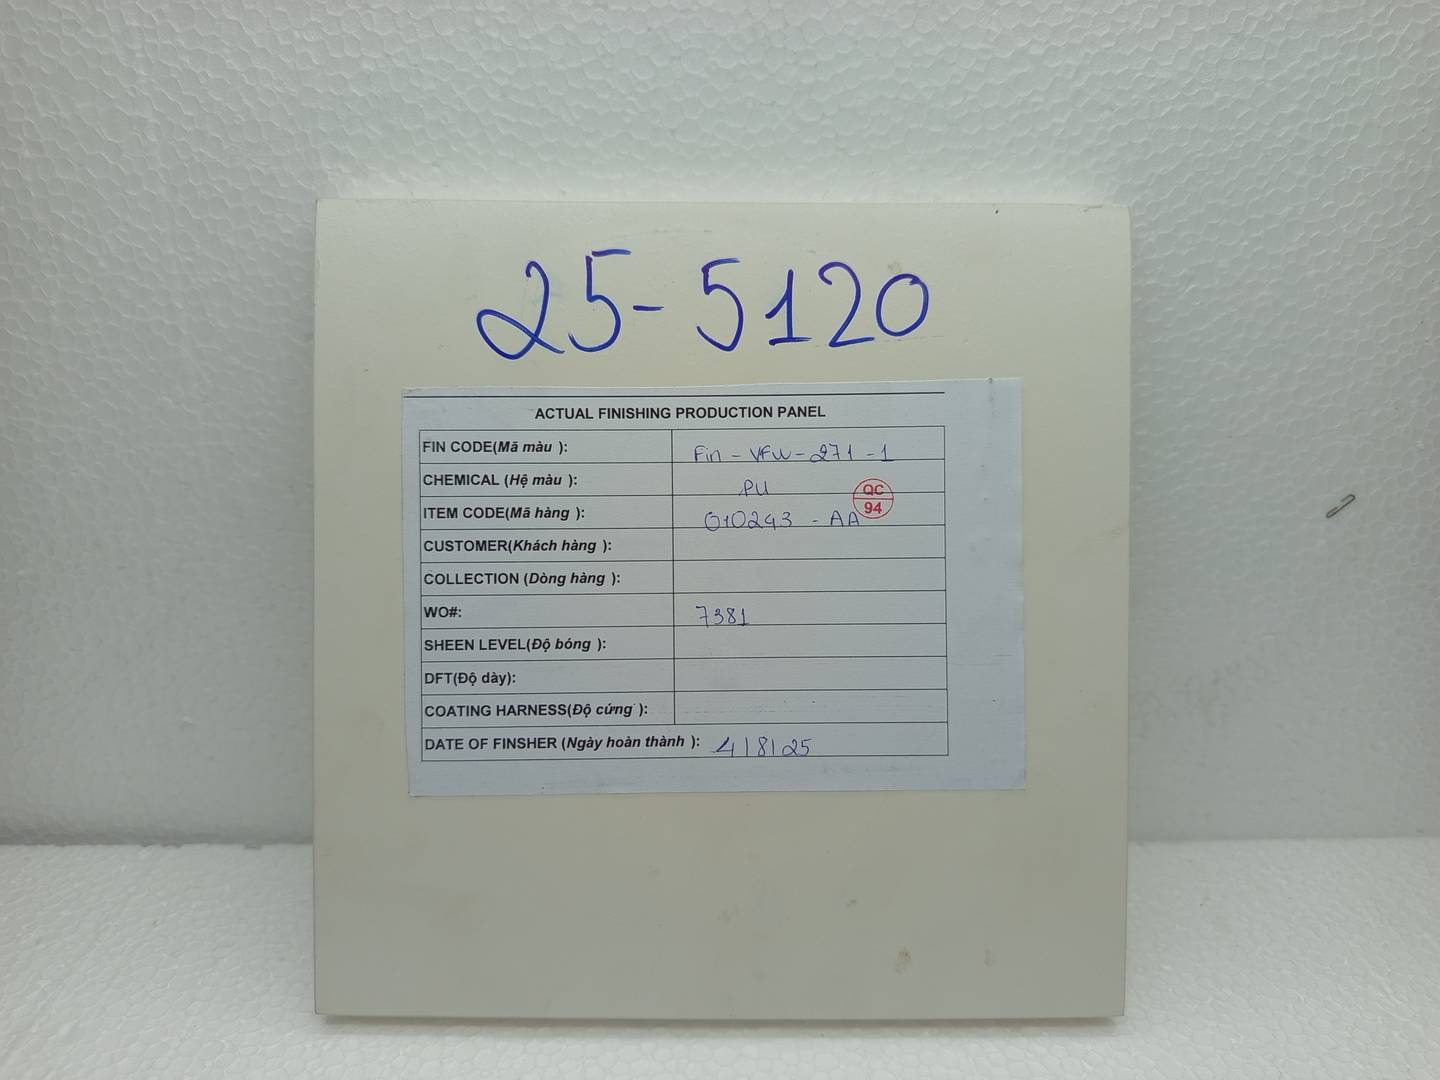 25-5120
ACTUAL FINISHING PRODUCTION PANEL
FIN CODE(Mã màu ): Fin - VFW - 271 - 1
CHEMICAL (Hệ màu ): PU
QC
94
ITEM CODE(Mã hàng ): 010243 - AA
CUSTOMER(Khách hàng ):
COLLECTION (Dòng hàng ):
WO#: 7381
SHEEN LEVEL(Độ bóng ):
DFT(Độ dày):
COATING HARNESS(Độ cứng ):
DATE OF FINSHER (Ngày hoàn thành ): 4|8|25